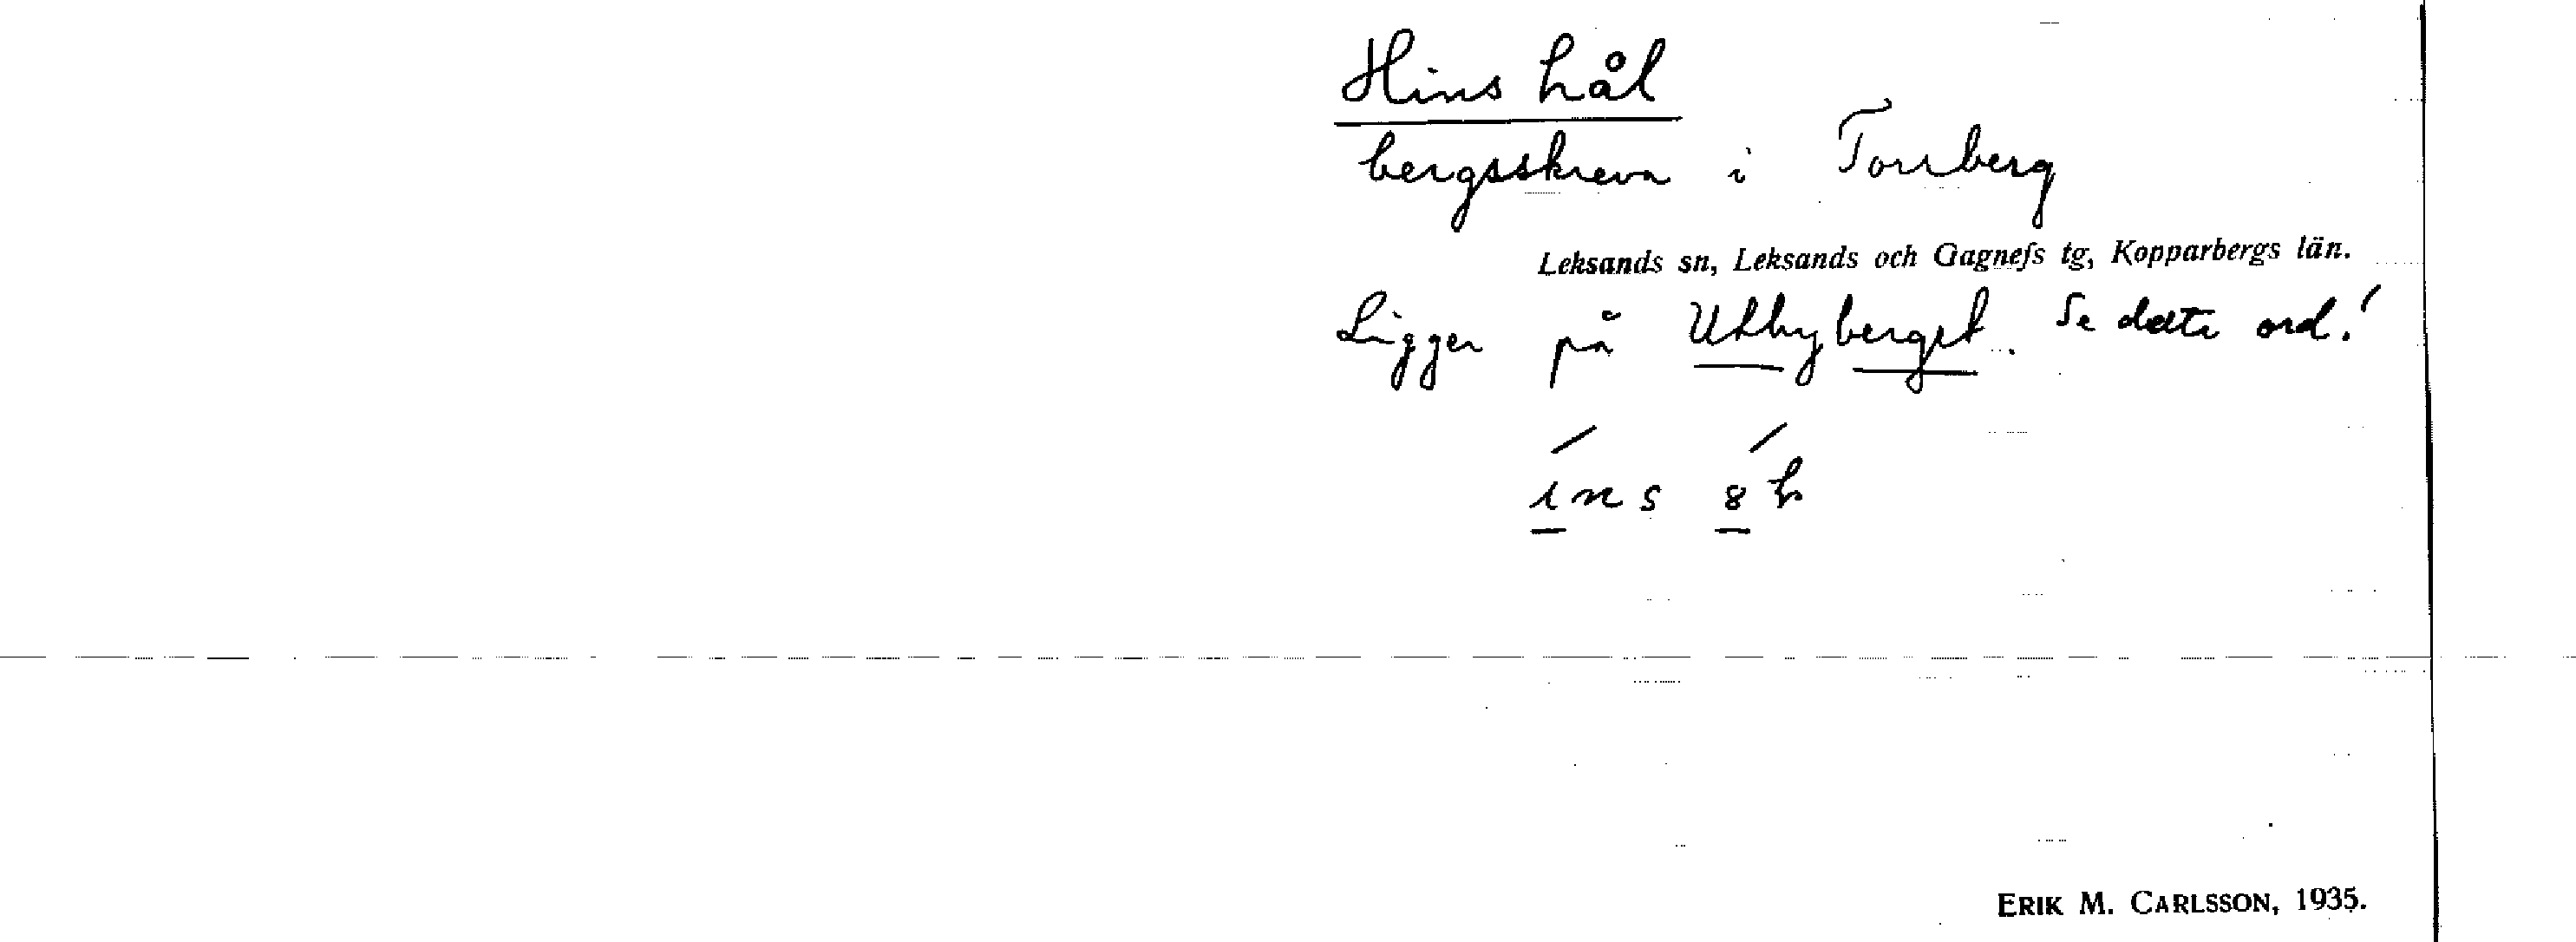 Hins hål
bergsskreva i Torrberg
Leksands sn, Leksands och Gagnefs tg, Kopparbergs län.
Ligger på Utbyberget. Se detta ord!
ins
ERIK M. CARLSSON, 1935.